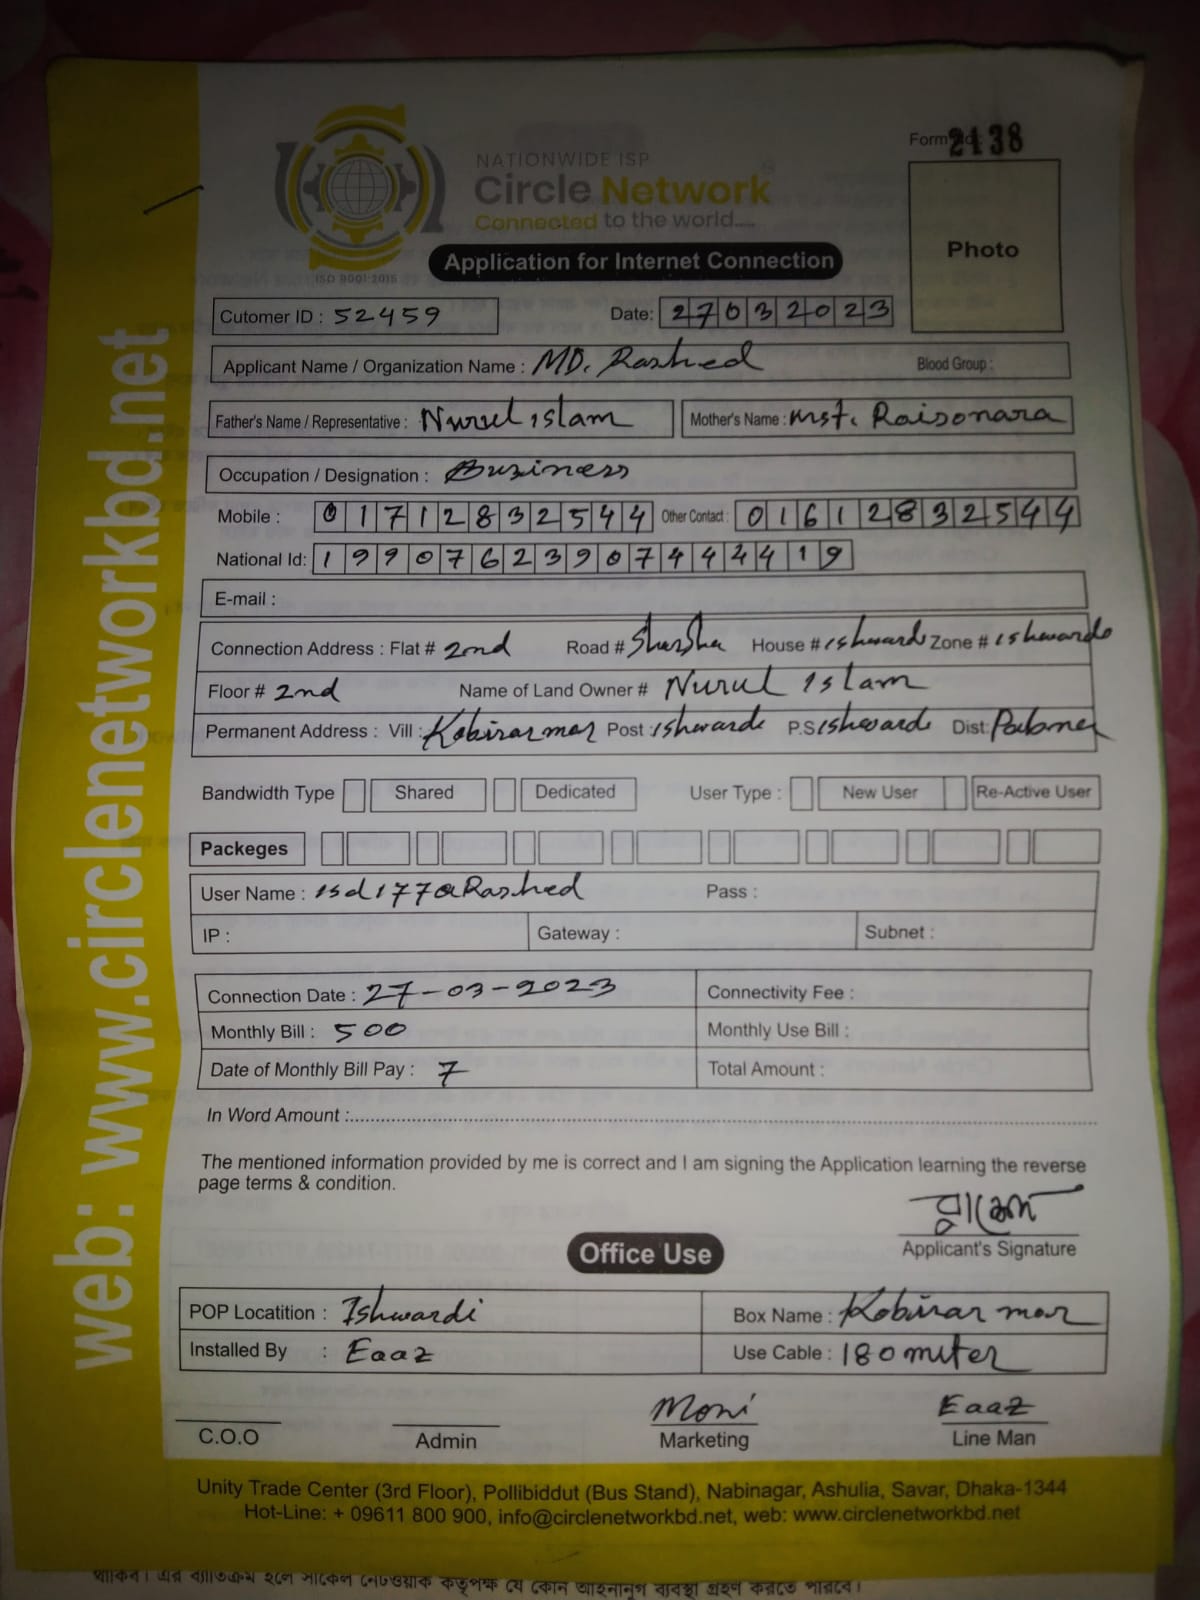 Form No: 2138
NATIONWIDE ISP
Circle Network
Connected to the world....
ISO 9001:2015
Application for Internet Connection
Photo
Cutomer ID : 52459 Date: 27032023
Applicant Name / Organization Name : MD. Rashed Blood Group :
Father's Name / Representative : Nurul islam Mother's Name : mst. Raisonara
Occupation / Designation : Business
Mobile : 01712832544 Other Contact : 01612832544
National Id: 19907623907444419
E-mail :
Connection Address : Flat # 2nd Road # House # ishwardi Zone # ishwardi
Floor # 2nd Name of Land Owner # Nurul islam
Permanent Address : Vill : Kobirar mor Post : ishwardi P.S ishwardi Dist: Pabna
Bandwidth Type Shared Dedicated User Type : New User Re-Active User
Packeges
User Name : isd177@Rashed Pass :
IP : Gateway : Subnet :
Connection Date : 27-03-2023 Connectivity Fee :
Monthly Bill : 500 Monthly Use Bill :
Date of Monthly Bill Pay : 7 Total Amount :
In Word Amount :
The mentioned information provided by me is correct and I am signing the Application learning the reverse
page terms & condition.
Applicant's Signature
Office Use
POP Locatition : Ishwardi Box Name : Kobirar mor
Installed By : Eaaz Use Cable : 180 miter
Moni Eaaz
C.O.O Admin Marketing Line Man
Unity Trade Center (3rd Floor), Pollibiddut (Bus Stand), Nabinagar, Ashulia, Savar, Dhaka-1344
Hot-Line: + 09611 800 900, info@circlenetworkbd.net, web: www.circlenetworkbd.net
web: www.circlenetworkbd.net
থাকিব। এর ব্যতিক্রম হলে সার্কেল নেটওয়াক কতৃপক্ষ যে কোন আইনানুগ ব্যবস্থা গ্রহণ করতে পারবে।